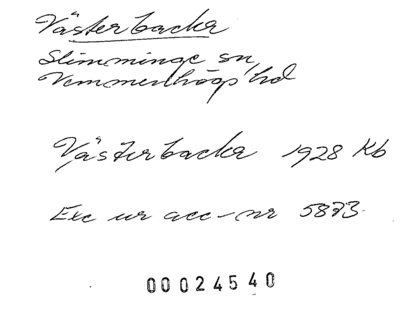 Västerbacka
Slimminge sn,
Vemmenhögs hd
Västerbacka 1928 Kb
Exc ur acc-nr 5873.
00024540